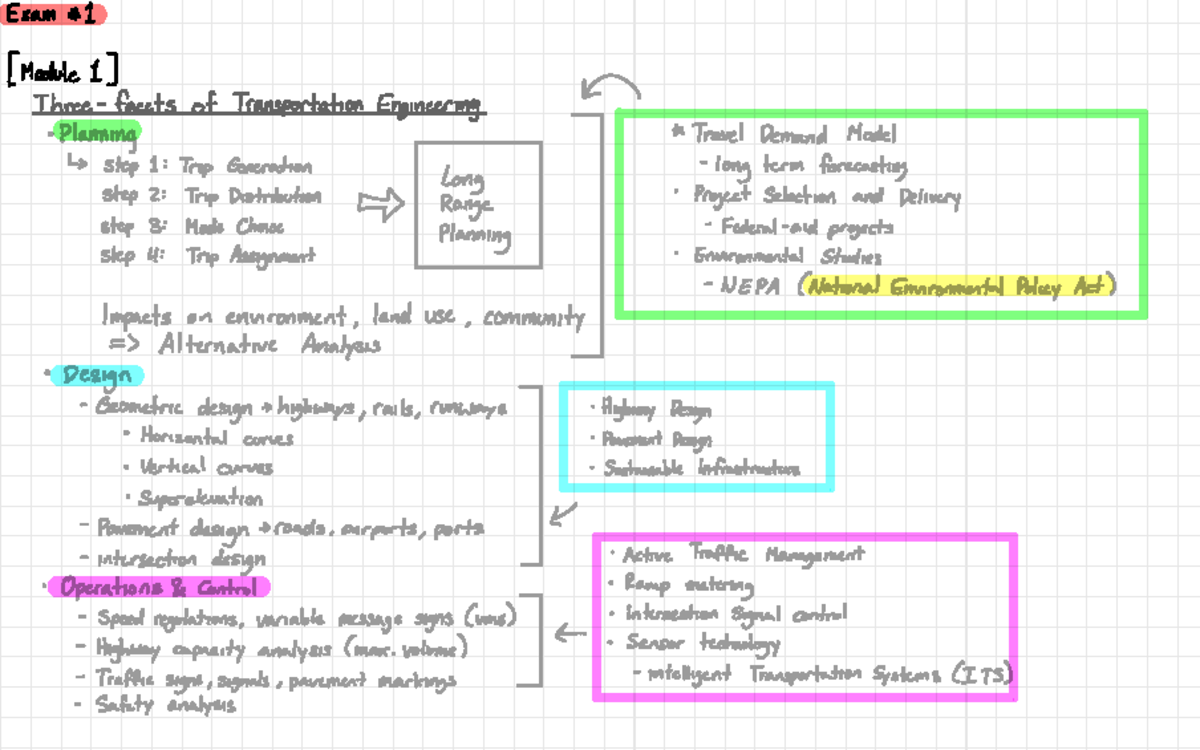 Exam #1
[Module 1]
Three-facets of Transportation Engineering
· Planning
↳ step 1: Trip Generation
step 2: Trip Distribution
step 3: Mode Choice
step 4: Trip Assignment
⇒ Long
Range
Planning
Impacts on environment, land use, community
=> Alternative Analysis
* Travel Demand Model
- long term forecasting
· Project Selection and Delivery
- Federal-aid projects
· Environmental Studies
- NEPA (National Environmental Policy Act)
· Design
- Geometric design → highways, rails, runways
· Horizontal curves
· Vertical curves
· Superelevation
- Pavement design → roads, airports, ports
- intersection design
· Highway Design
· Pavement Design
· Sustainable Infrastructure
· Operations & Control
- Speed regulations, variable message signs (vms)
- Highway capacity analysis (max. volume)
- Traffic signs, signals, pavement markings
- Safety analysis
· Active Traffic Management
· Ramp metering
· Intersection Signal control
· Sensor technology
- intelligent Transportation Systems (ITS)